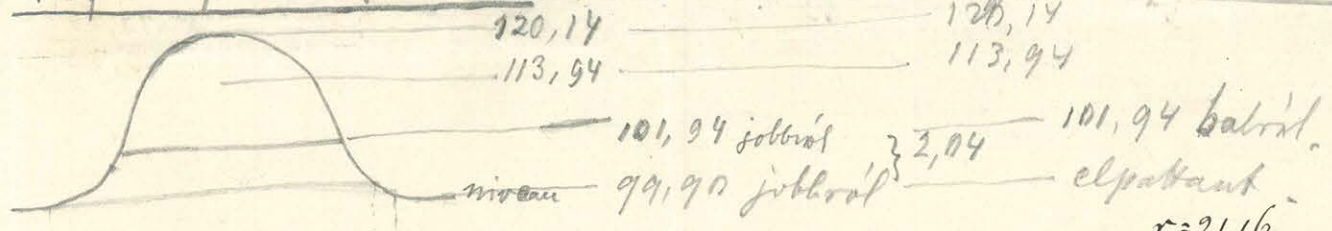 120,14 120,14
113,94 113,94
101,94 jobbról } 2,04 101,94 balról.
niveau 99,90 jobbról elpattant.
r=21,6